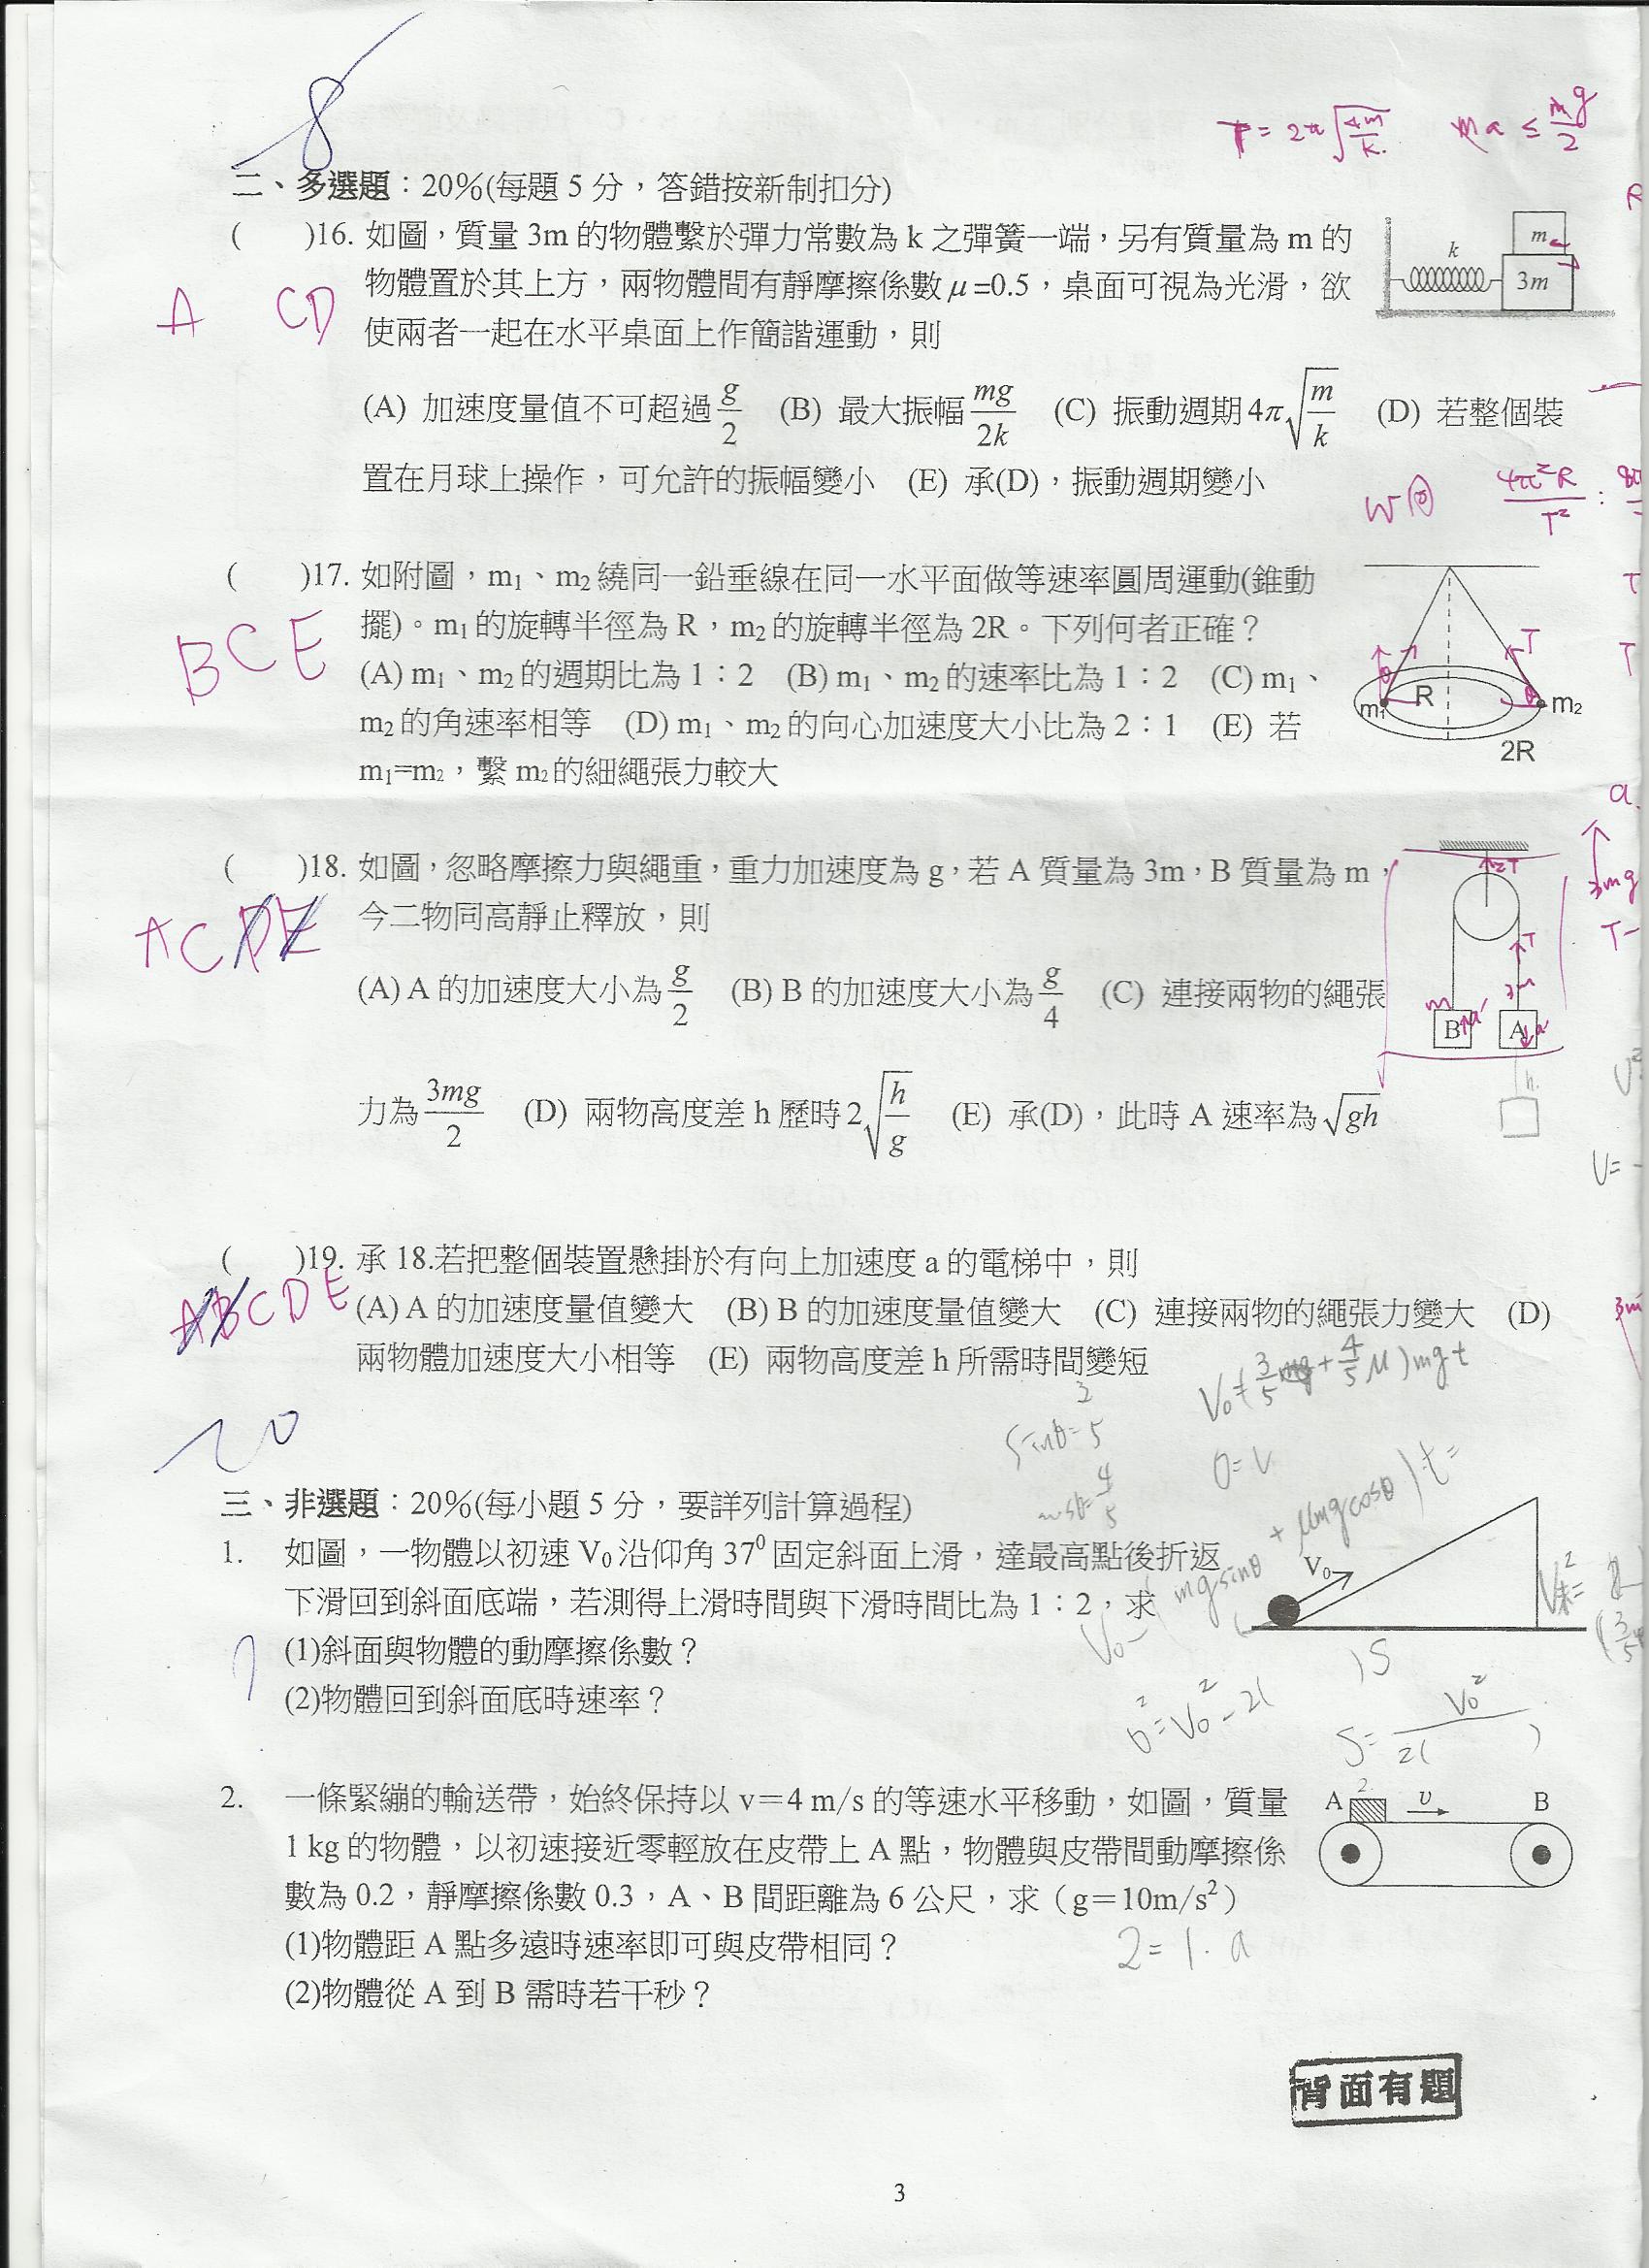 8
T = 2π√(4m/k)  ma ≤ mg/2
二、多選題：20%(每題 5 分，答錯按新制扣分)
(　　)16. 如圖，質量 3m 的物體繫於彈力常數為 k 之彈簧一端，另有質量為 m 的
物體置於其上方，兩物體間有靜摩擦係數μ=0.5，桌面可視為光滑，欲
使兩者一起在水平桌面上作簡諧運動，則
A CD
k m 3m
(A) 加速度量值不可超過 g/2 (B) 最大振幅 mg/2k (C) 振動週期 4π√(m/k) (D) 若整個裝
置在月球上操作，可允許的振幅變小 (E) 承(D)，振動週期變小
4π²R/T² :
(　　)17. 如附圖，m₁、m₂ 繞同一鉛垂線在同一水平面做等速率圓周運動(錐動
擺)。m₁ 的旋轉半徑為 R，m₂ 的旋轉半徑為 2R。下列何者正確？
(A) m₁、m₂ 的週期比為 1：2 (B) m₁、m₂ 的速率比為 1：2 (C) m₁、
m₂ 的角速率相等 (D) m₁、m₂ 的向心加速度大小比為 2：1 (E) 若
m₁=m₂，繫 m₂ 的細繩張力較大
BCE
T θ θ
m₁ R m₂
2R
(　　)18. 如圖，忽略摩擦力與繩重，重力加速度為 g，若 A 質量為 3m，B 質量為 m，
今二物同高靜止釋放，則
ACDE
(A) A 的加速度大小為 g/2 (B) B 的加速度大小為 g/4 (C) 連接兩物的繩張
力為 3mg/2 (D) 兩物高度差 h 歷時 2√(h/g) (E) 承(D)，此時 A 速率為 √gh
2T
T
m 3m
B A
h
(　　)19. 承 18.若把整個裝置懸掛於有向上加速度 a 的電梯中，則
ABCDE
(A) A 的加速度量值變大 (B) B 的加速度量值變大 (C) 連接兩物的繩張力變大 (D)
兩物體加速度大小相等 (E) 兩物高度差 h 所需時間變短
20
sinθ=3/5
cosθ=4/5
三、非選題：20%(每小題 5 分，要詳列計算過程)
1. 如圖，一物體以初速 V₀ 沿仰角 37⁰ 固定斜面上滑，達最高點後折返
下滑回到斜面底端，若測得上滑時間與下滑時間比為 1：2，求
(1)斜面與物體的動摩擦係數？
(2)物體回到斜面底時速率？
V₀
V₀ - (mgsinθ + μmgcosθ) t =
0²=V₀²-2( )S
S= V₀²/2( )
2. 一條緊繃的輸送帶，始終保持以 v＝4 m/s 的等速水平移動，如圖，質量
1 kg 的物體，以初速接近零輕放在皮帶上 A 點，物體與皮帶間動摩擦係
數為 0.2，靜摩擦係數 0.3，A、B 間距離為 6 公尺，求（g＝10m/s²）
(1)物體距 A 點多遠時速率即可與皮帶相同？
(2)物體從 A 到 B 需時若干秒？
A 2 υ B
2 = 1 · a
背面有題
3